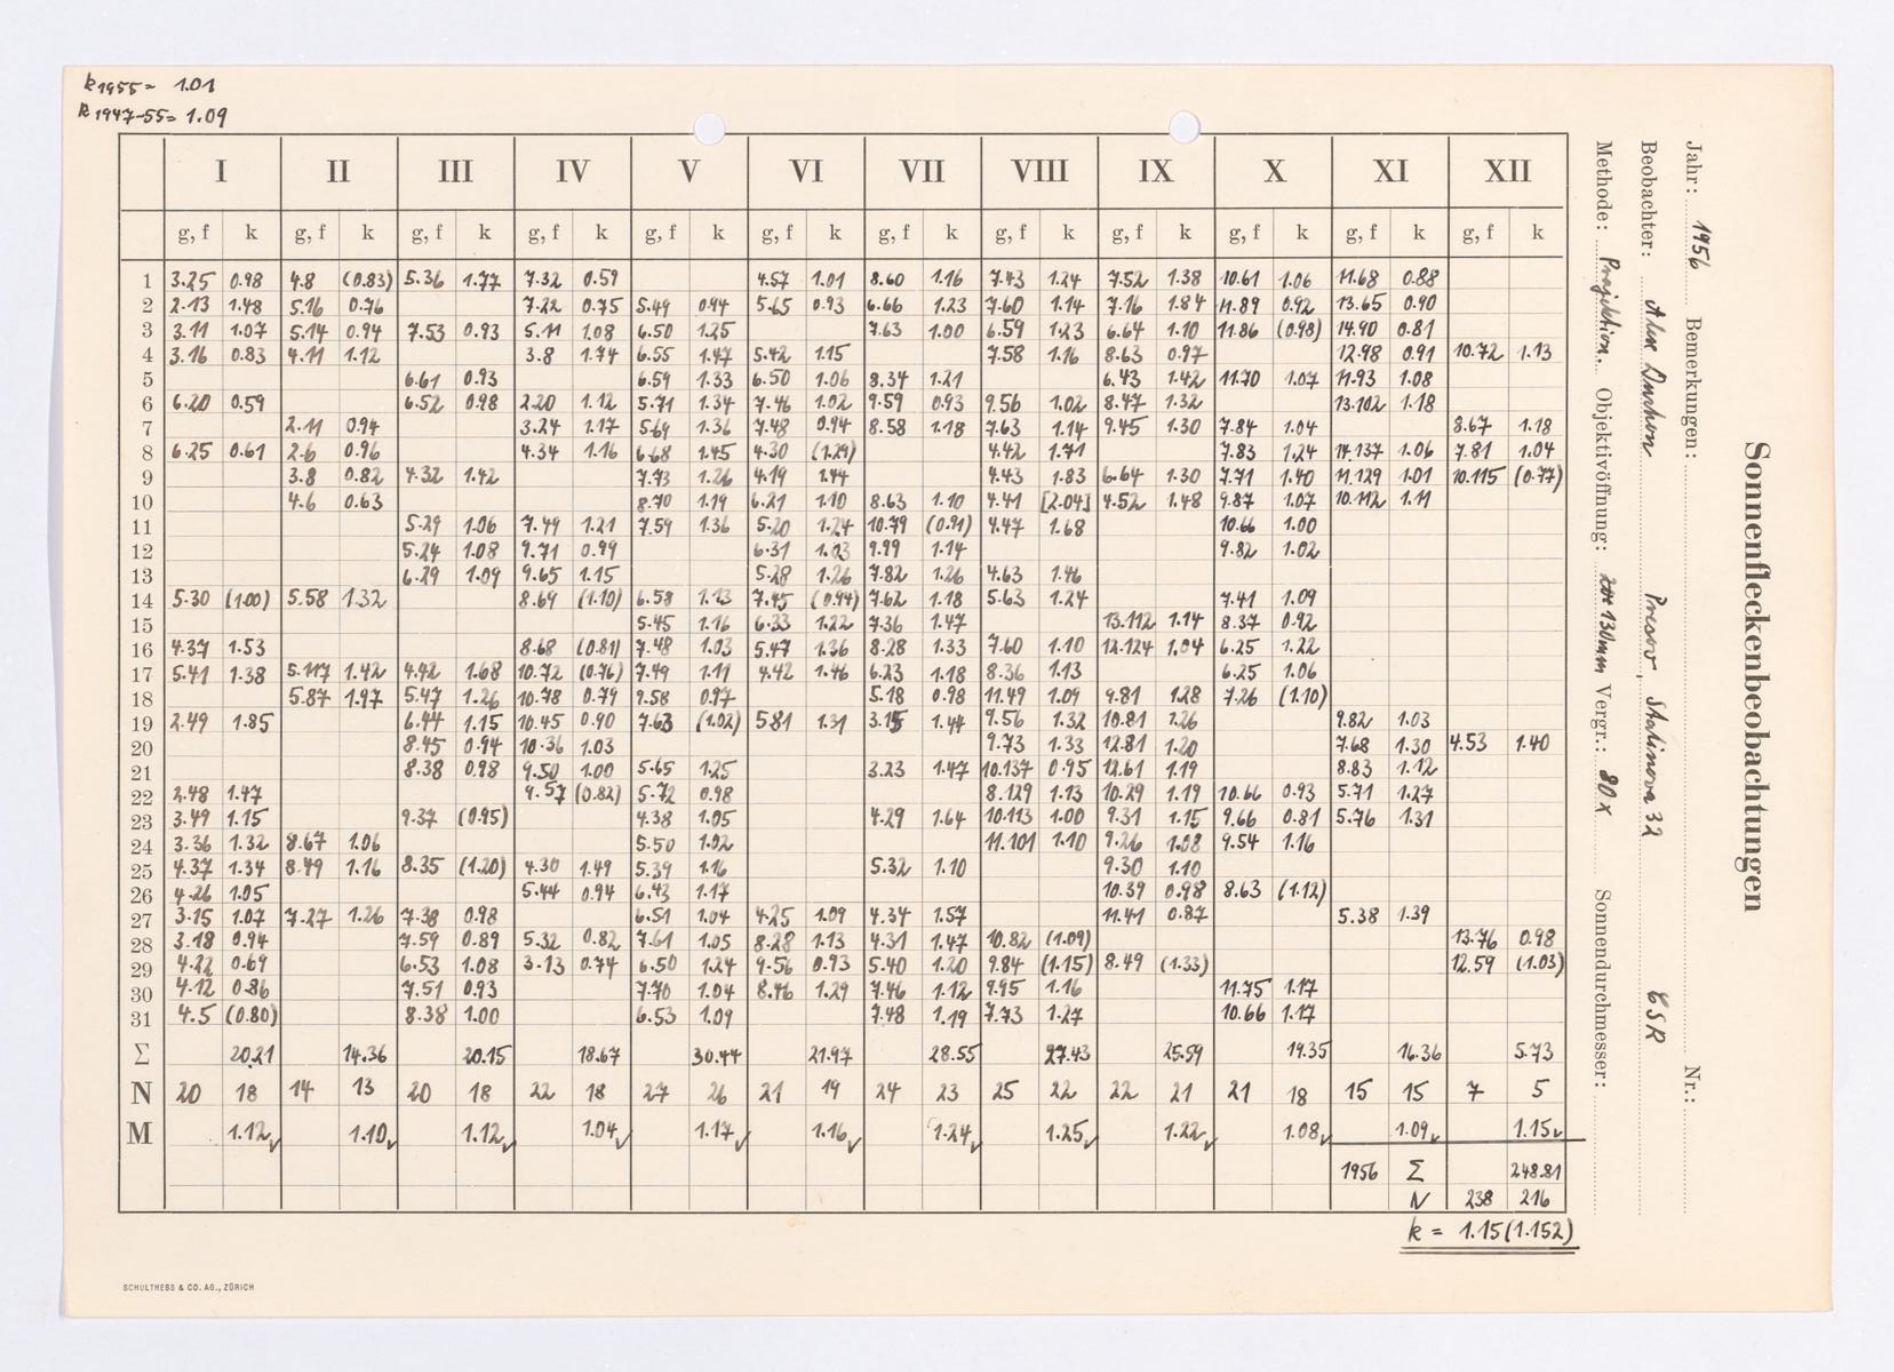 k1955= 1.01
k1947-55= 1.09
I II III IV V VI VII VIII IX X XI XII
g, f k g, f k g, f k g, f k g, f k g, f k g, f k g, f k g, f k g, f k g, f k g, f k
1 3.25 0.98 4.8 (0.83) 5.36 1.77 7.32 0.59 4.57 1.01 8.60 1.16 7.43 1.24 7.52 1.38 10.61 1.06 11.68 0.88
2 2.13 1.48 5.16 0.76 7.22 0.75 5.49 0.94 5.65 0.93 6.66 1.23 7.60 1.14 7.16 1.84 11.89 0.92 13.65 0.90
3 3.11 1.07 5.14 0.94 7.53 0.93 5.11 1.08 6.50 1.25 7.63 1.00 6.59 1.23 6.64 1.10 11.86 (0.98) 14.90 0.81
4 3.16 0.83 4.11 1.12 3.8 1.74 6.55 1.47 5.42 1.15 7.58 1.16 8.63 0.97 12.98 0.91 10.72 1.13
5 6.61 0.93 6.59 1.33 6.50 1.06 8.34 1.21 6.43 1.42 11.70 1.07 11.93 1.08
6 6.20 0.59 6.52 0.98 2.20 1.12 5.71 1.34 7.46 1.02 9.59 0.93 9.56 1.02 8.47 1.32 13.102 1.18
7 2.11 0.94 3.24 1.17 5.69 1.36 7.48 0.94 8.58 1.18 7.63 1.14 9.45 1.30 7.84 1.04 8.67 1.18
8 6.25 0.61 2.6 0.96 4.34 1.16 6.68 1.45 4.30 (1.29) 4.42 1.71 7.83 1.24 14.137 1.06 7.81 1.04
9 3.8 0.82 4.32 1.42 7.73 1.26 4.19 1.44 4.43 1.83 6.64 1.30 7.71 1.40 11.129 1.01 10.115 (0.77)
10 4.6 0.63 8.70 1.19 6.21 1.10 8.63 1.10 4.41 [2.04] 4.52 1.48 9.87 1.07 10.112 1.11
11 5.29 1.06 7.49 1.21 7.59 1.36 5.20 1.24 10.79 (0.91) 4.47 1.68 10.66 1.00
12 5.24 1.08 9.71 0.99 6.31 1.03 9.99 1.14 9.82 1.02
13 6.29 1.09 9.65 1.15 5.28 1.26 7.82 1.26 4.63 1.46
14 5.30 (1.00) 5.58 1.32 8.69 (1.10) 6.58 1.13 7.45 (0.94) 7.62 1.18 5.63 1.24 7.41 1.09
15 5.45 1.16 6.33 1.22 7.36 1.47 13.112 1.14 8.37 0.92
16 4.37 1.53 8.68 (0.81) 7.48 1.03 5.47 1.36 8.28 1.33 7.60 1.10 12.124 1.04 6.25 1.22
17 5.41 1.38 5.117 1.42 4.42 1.68 10.72 (0.76) 7.49 1.11 4.42 1.46 6.23 1.18 8.36 1.13 6.25 1.06
18 5.87 1.97 5.47 1.26 10.78 0.79 9.58 0.97 5.18 0.98 11.49 1.09 9.81 1.28 7.26 (1.10)
19 2.49 1.85 6.44 1.15 10.45 0.90 7.63 (1.02) 5.81 1.31 3.15 1.44 9.56 1.32 10.81 1.26 9.82 1.03
20 8.45 0.94 10.36 1.03 9.73 1.33 12.81 1.20 7.68 1.30 4.53 1.40
21 8.38 0.98 9.50 1.00 5.65 1.25 3.23 1.47 10.137 0.95 12.61 1.19 8.83 1.12
22 2.48 1.47 9.57 (0.82) 5.72 0.98 8.129 1.13 10.29 1.19 10.66 0.93 5.71 1.27
23 3.49 1.15 9.37 (0.95) 4.38 1.05 4.29 1.64 10.113 1.00 9.31 1.15 9.66 0.81 5.76 1.31
24 3.36 1.32 8.67 1.06 5.50 1.02 11.101 1.10 9.26 1.08 9.54 1.16
25 4.37 1.34 8.49 1.16 8.35 (1.20) 4.30 1.49 5.39 1.16 5.32 1.10 9.30 1.10
26 4.26 1.05 5.44 0.94 6.43 1.17 10.39 0.98 8.63 (1.12)
27 3.15 1.07 7.27 1.26 7.38 0.98 6.51 1.04 4.25 1.09 4.34 1.57 11.41 0.87 5.38 1.39
28 3.18 0.94 7.59 0.89 5.32 0.82 7.61 1.05 8.28 1.13 4.31 1.47 10.82 (1.09) 13.76 0.98
29 4.22 0.69 6.53 1.08 3.13 0.74 6.50 1.24 9.56 0.93 5.40 1.20 9.84 (1.15) 8.49 (1.33) 12.59 (1.03)
30 4.12 0.86 7.51 0.93 7.70 1.04 8.46 1.29 7.46 1.12 9.95 1.16 11.75 1.17
31 4.5 (0.80) 8.38 1.00 6.53 1.09 7.48 1.19 7.73 1.27 10.66 1.17
Σ 20.21 14.36 20.15 18.67 30.44 21.97 28.55 27.43 25.59 19.35 16.36 5.73
N 20 18 14 13 20 18 22 18 27 26 21 19 24 23 25 22 22 21 21 18 15 15 7 5
M 1.12 1.10 1.12 1.04 1.17 1.16 1.24 1.25 1.22 1.08 1.09 1.15
1956 Σ 248.81
N 238 216
k = 1.15 (1.152)
SCHULTHESS & CO. AG., ZÜRICH
Sonnenfleckenbeobachtungen
Jahr: 1956 Bemerkungen: Nr.:
Beobachter: Presov, Stalinova 32 ČSR
Methode: Projektion. Objektivöffnung: 130mm Vergr.: 80 x Sonnendurchmesser: